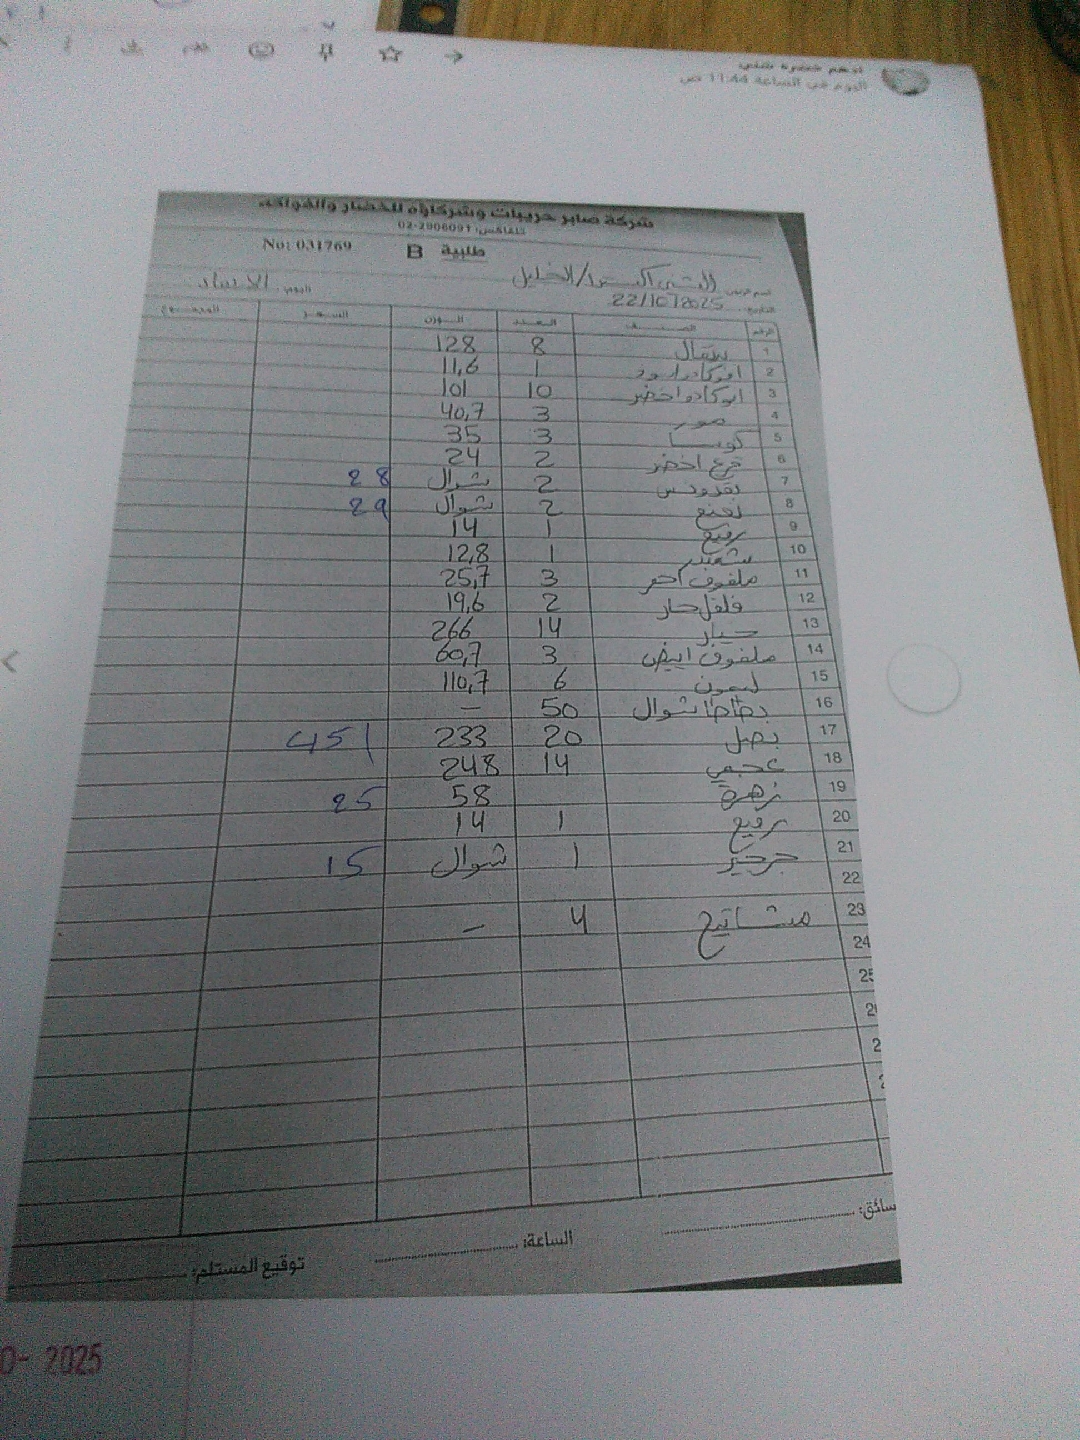 اليوم في الساعة 11:44 ص
شركة صابر حريبات وشركاؤه للخضار والفواكه
تلفاكس: 02-2906091
No: 031769 طلبية B
22/10/2025
اليوم: الاربعاء
الرقم الصنف العدد الوزن السعر المجموع
1 برتقال 8 128
2 افوكادو اسود 1 11,6
3 افوكادو اخضر 10 101
4 موز 3 40,7
5 كوسا 3 35
6 قرع اخضر 2 24
7 بقدونس 2 شوال 28
8 نعنع 2 شوال 29
9 رفيع 1 14
10 شمندر 1 12,8
11 ملفوف احمر 3 25,7
12 فلفل حار 2 19,6
13 خيار 14 266
14 ملفوف ابيض 3 60,7
15 ليمون 6 110,7
16 بطاطا شوال 50 –
17 بصل 20 233 451
18 عجمي 14 248
19 زهرة 58 25
20 رفيع 1 14
21 جرجير 1 شوال 15
22
23 مشاتيح 4 –
24
25
سائق:
الساعة:
توقيع المستلم:
2025